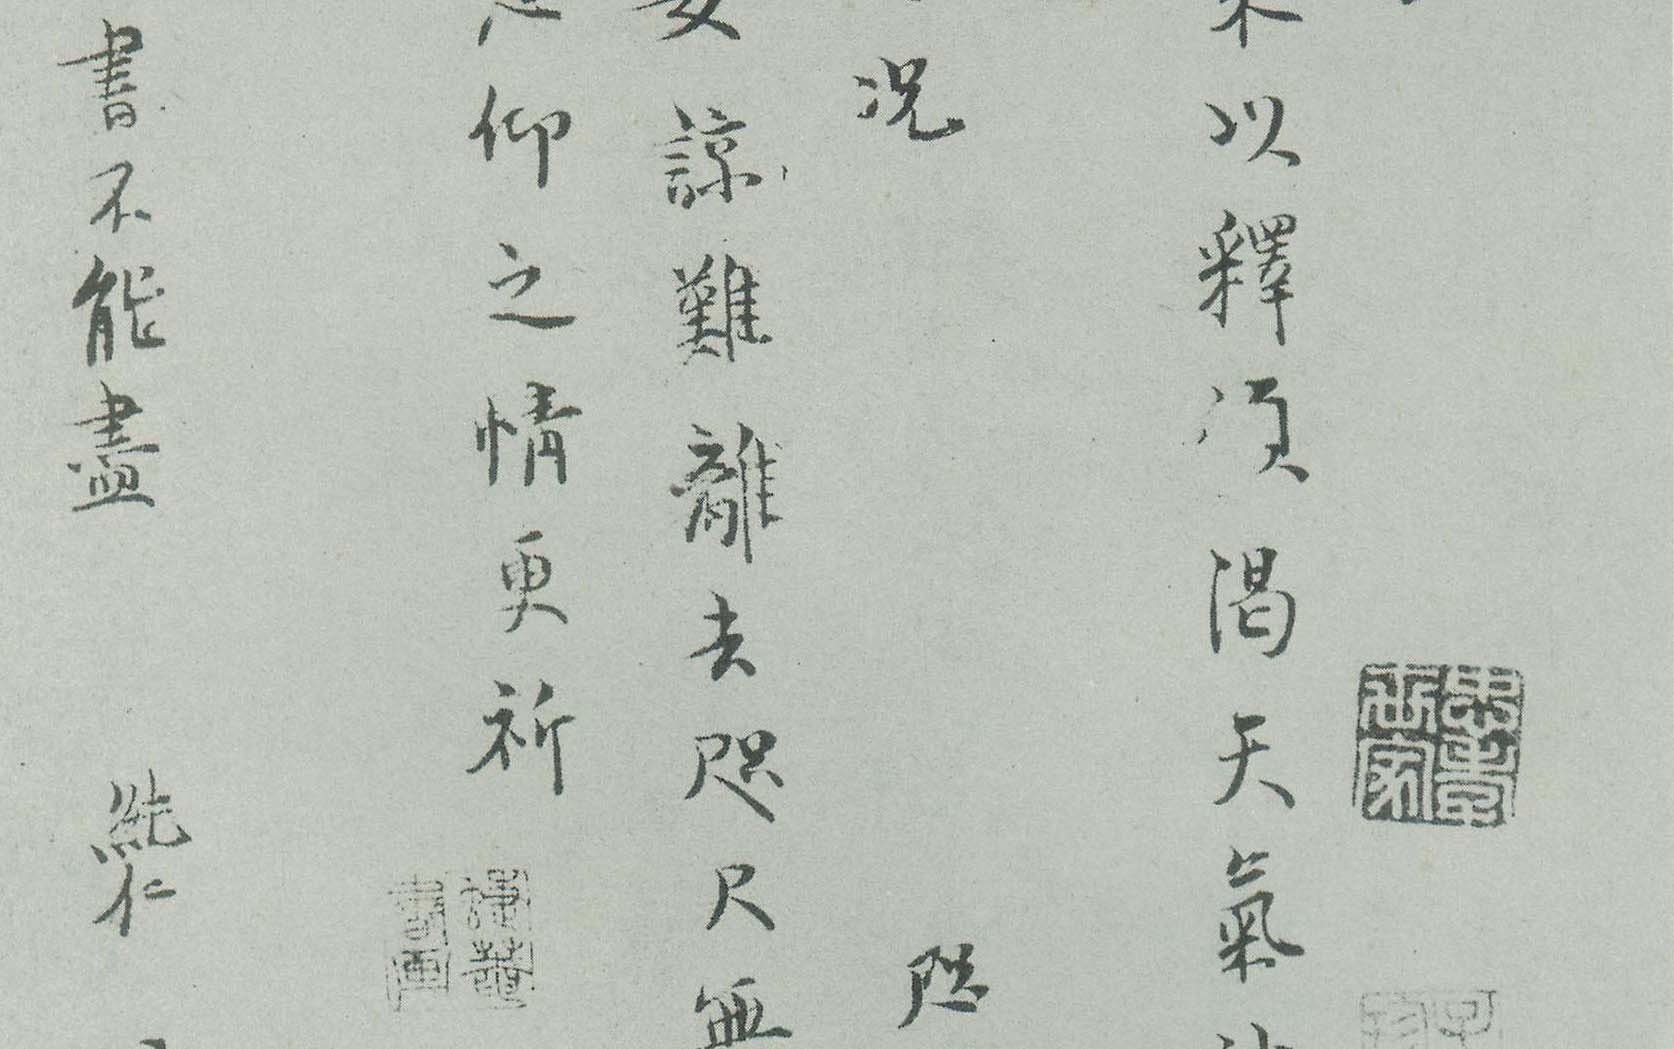 以釋須渴天氣
況 咫
諒難離去咫尺無
仰之情更祈
書不能盡 純仁